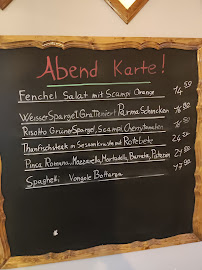 Abend Karte!
Fenchel Salat mit Scampi Orange 14 50
Weisser Spargel Gratiniert Parma Schincken 16 50
Risotto Grüne Spargel, Scampi, Cherrytomaten
Thunfischsteak in Sesamkruste mit Rote bete 24 50
Pinsa Romana, Mozzarella, Mortadella, Burrata, Pistazien 21 50
Spaghetti Vongole Bottarga 17 90